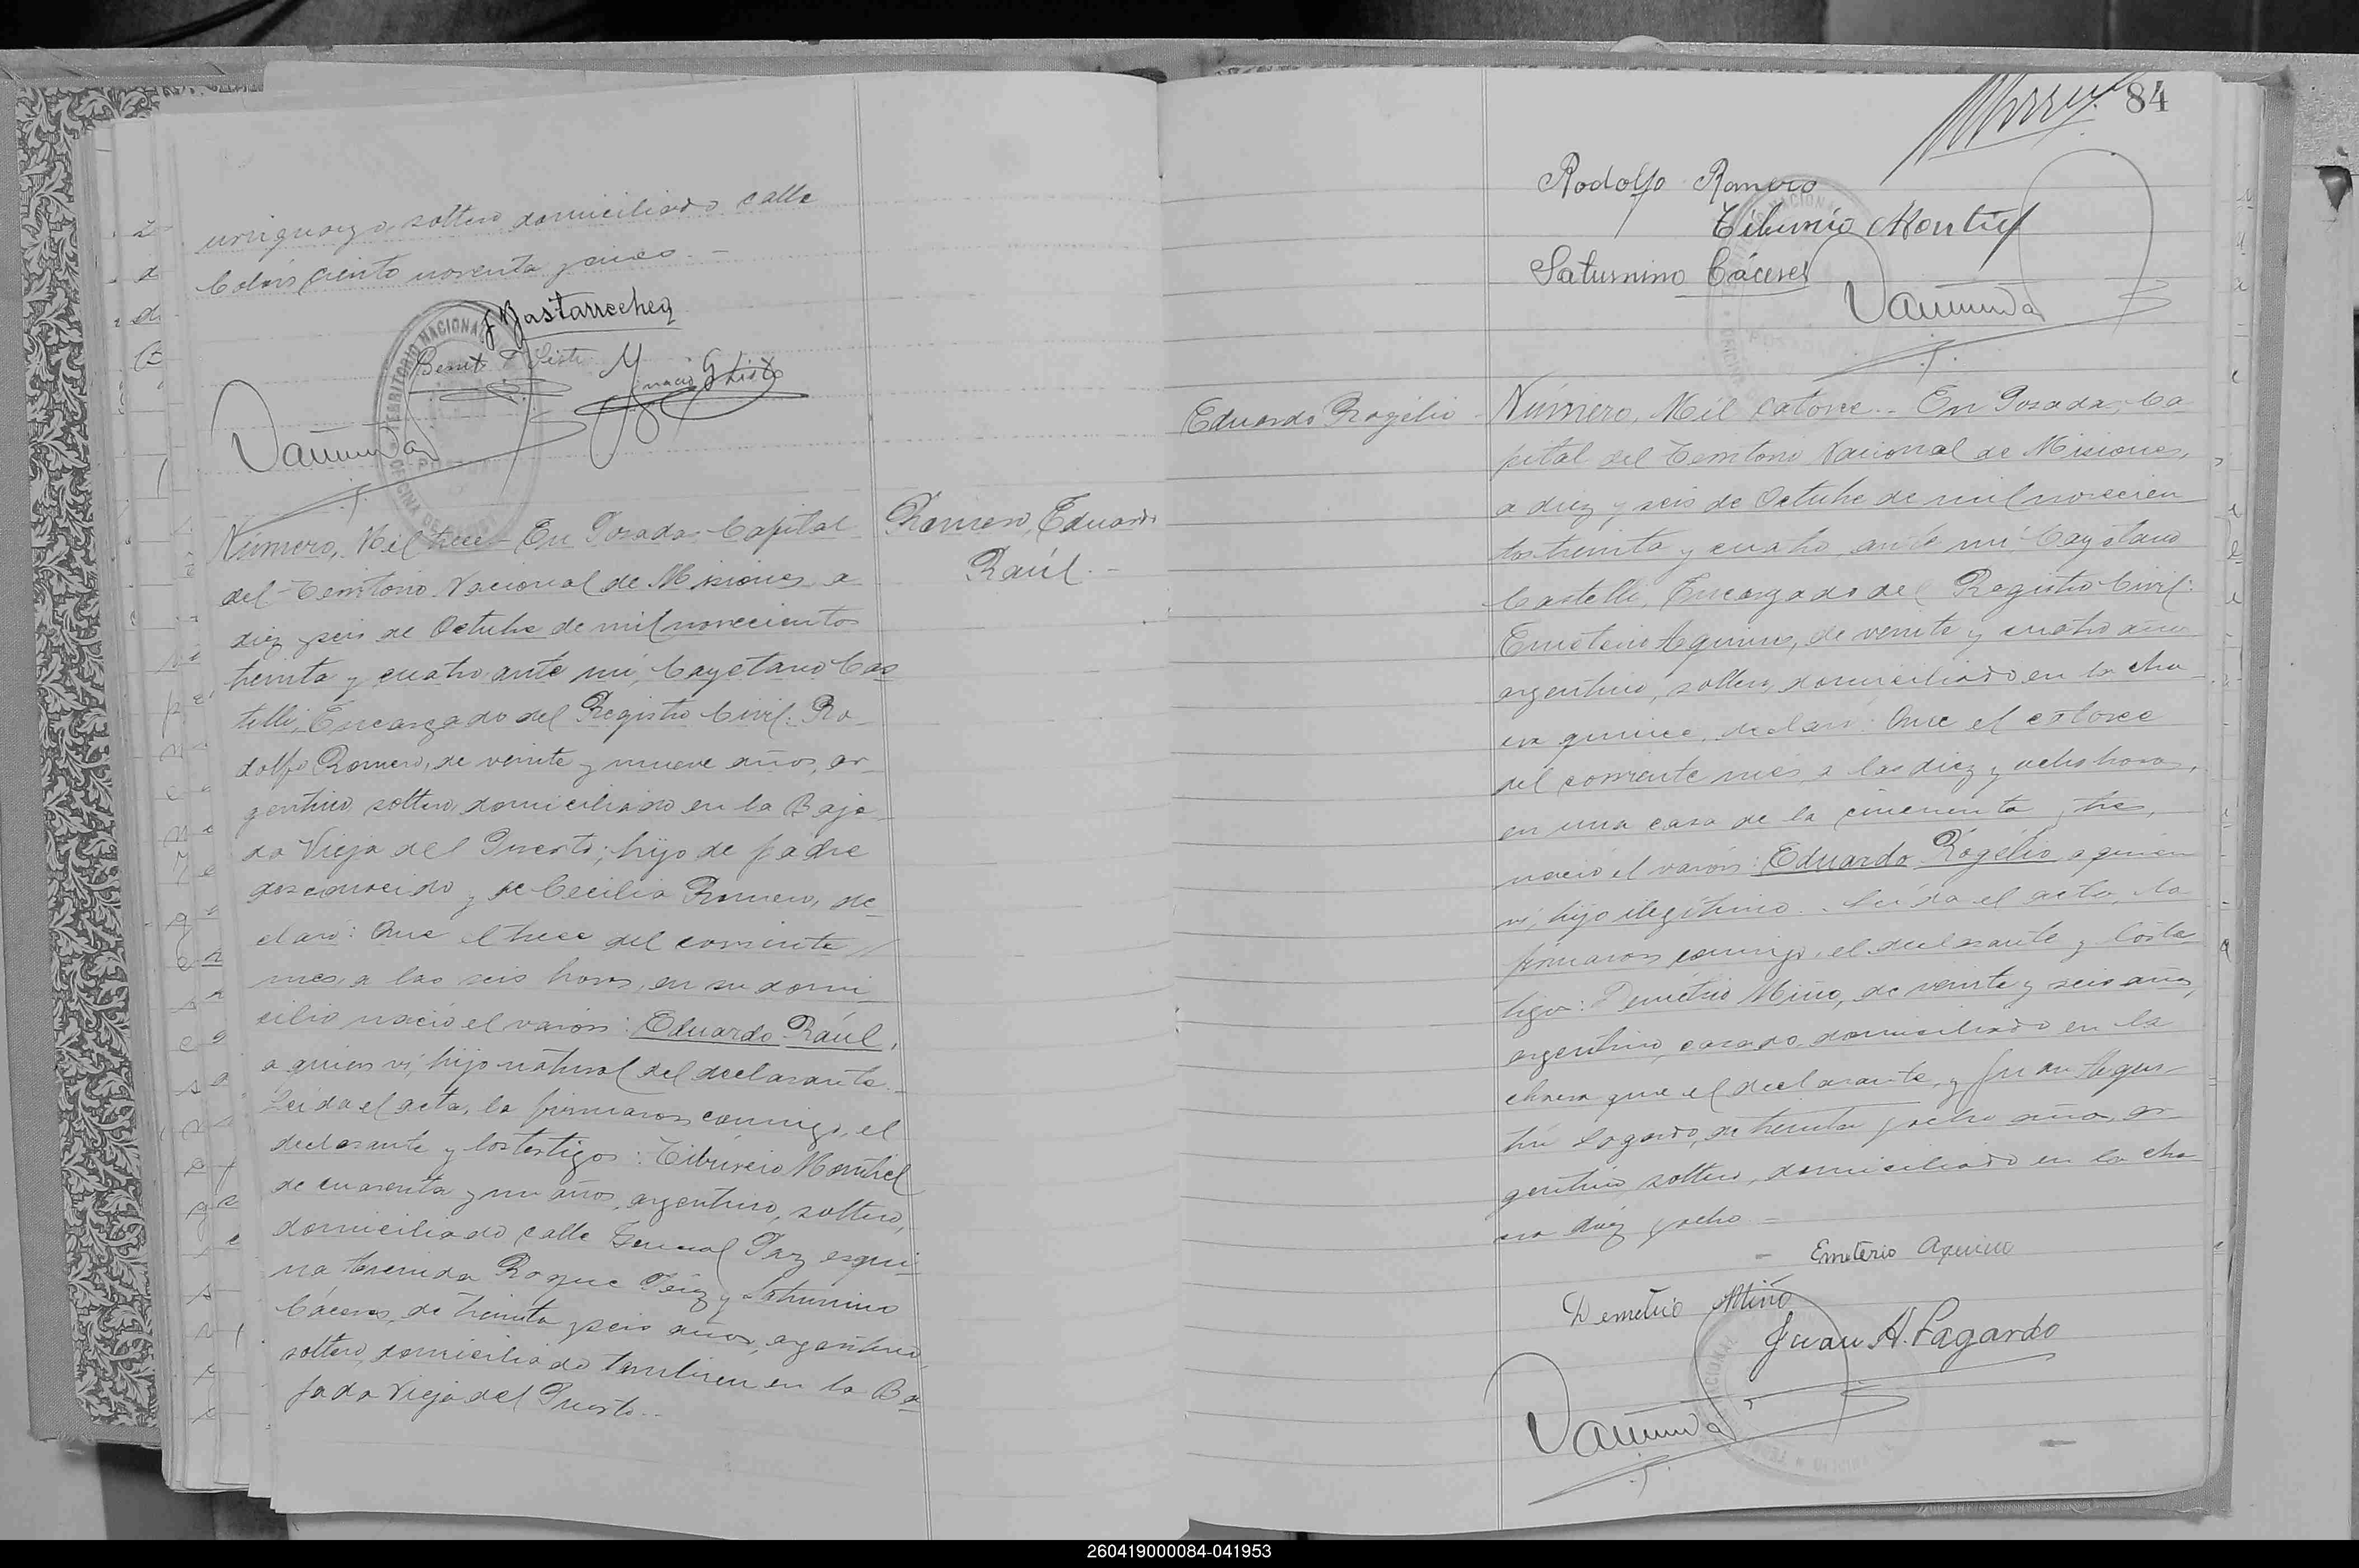 uruguayo, soltero domiciliado calle
Colón ciento noventa y cinco. -
J Bastarrechea
TERRITORIO NACIONAL
OFICINA DE
Número, Mil trece - En Posadas Capital
del Territorio Nacional de Misiones, a
diez y seis de Octubre de mil novecientos
treinta y cuatro, ante mí, Cayetano Cas
telli, Encargado del Registro Civil: Ro-
dolfo Romero, de veinte y nueve años, ar-
gentino, soltero, domiciliado en la Baja-
da Vieja del Puerto; hijo de padre
desconocido y de Cecilia Romero, de-
claró: Que el trece del corriente //
mes, a las seis horas, en su domi-
cilio nació el varón: Eduardo Raúl,
a quien ví, hijo natural del declarante. -
Leída el acta, la firmaron conmigo, el
declarante y los testigos: Tiburcio Montiel
de cuarenta y un años, argentino, soltero,
domiciliado calle General Paz esqui-
na Avenida Roque Pérez y Saturnino
Cáceres, de treinta y seis años, argentino,
soltero, domiciliado tambien en la Ba
jada Vieja del Puerto. -
Romero, Eduardo
Raúl. -
84
Rodolfo Romero
Tiburcio Montiel
Saturnino Cáceres
Eduardo Rogelio -
Número, Mil catorce. - En Posadas, Ca
pital del Territorio Nacional de Misiones,
a diez y seis de Octubre de mil novecien
tos treinta y cuatro, ante mí Cayetano
Castelli, Encargado del Registro Civil:
Emeterio Aquino, de veinte y cuatro años
argentino, soltero, domiciliado en la cha-
cra quince, declaró: Que el catorce
del corriente mes, a las diez y ocho horas,
en una casa de la cincuenta y tres,
nació el varón: Eduardo Rogelio a quien
ví, hijo ilegítimo. - Leída el acta, la
firmaron conmigo, el declarante y los tes
tigos: Demetrio Miño, de veinte y seis años,
argentino, casado, domiciliado en la
chacra que el declarante, y Juan Agus-
tín Lagardo, de treinta y ocho años, ar-
gentino, soltero, domiciliado en la cha-
cra diez y ocho. -
- Emeterio Aquino
Demetrio Miño
Juan A. Lagardo
260419000084-041953